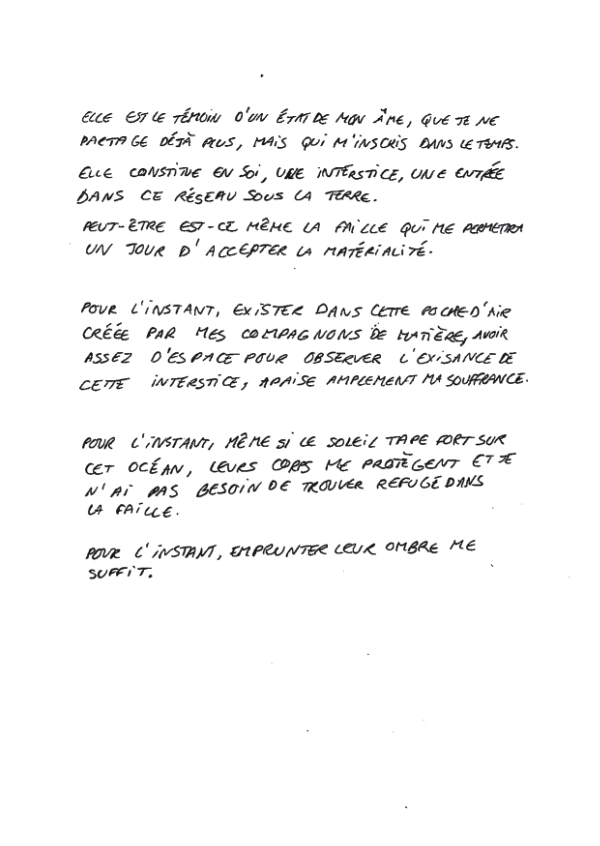 ELLE EST LE TÉMOIN D'UN ÉTAT DE MON ÂME, QUE JE NE
PARTAGE DÉJÀ PLUS, MAIS QUI M'INSCRIS DANS LE TEMPS.
ELLE CONSTITUE EN SOI, UNE INTERSTICE, UNE ENTRÉE
DANS CE RÉSEAU SOUS LA TERRE.
PEUT-ÊTRE EST-CE MÊME LA FAILLE QUI ME PERMETTRA
UN JOUR D'ACCEPTER LA MATÉRIALITÉ.
POUR L'INSTANT, EXISTER DANS CETTE POCHE D'AIR
CRÉÉE PAR MES COMPAGNONS DE MATIÈRE, AVOIR
ASSEZ D'ESPACE POUR OBSERVER L'EXISANCE DE
CETTE INTERSTICE, APAISE AMPLEMENT MA SOUFFRANCE.
POUR L'INSTANT, MÊME SI LE SOLEIL TAPE FORT SUR
CET OCÉAN, LEURS CORPS ME PROTÈGENT ET JE
N'AI PAS BESOIN DE TROUVER REFUGE DANS
LA FAILLE.
POUR L'INSTANT, EMPRUNTER LEUR OMBRE ME
SUFFIT.